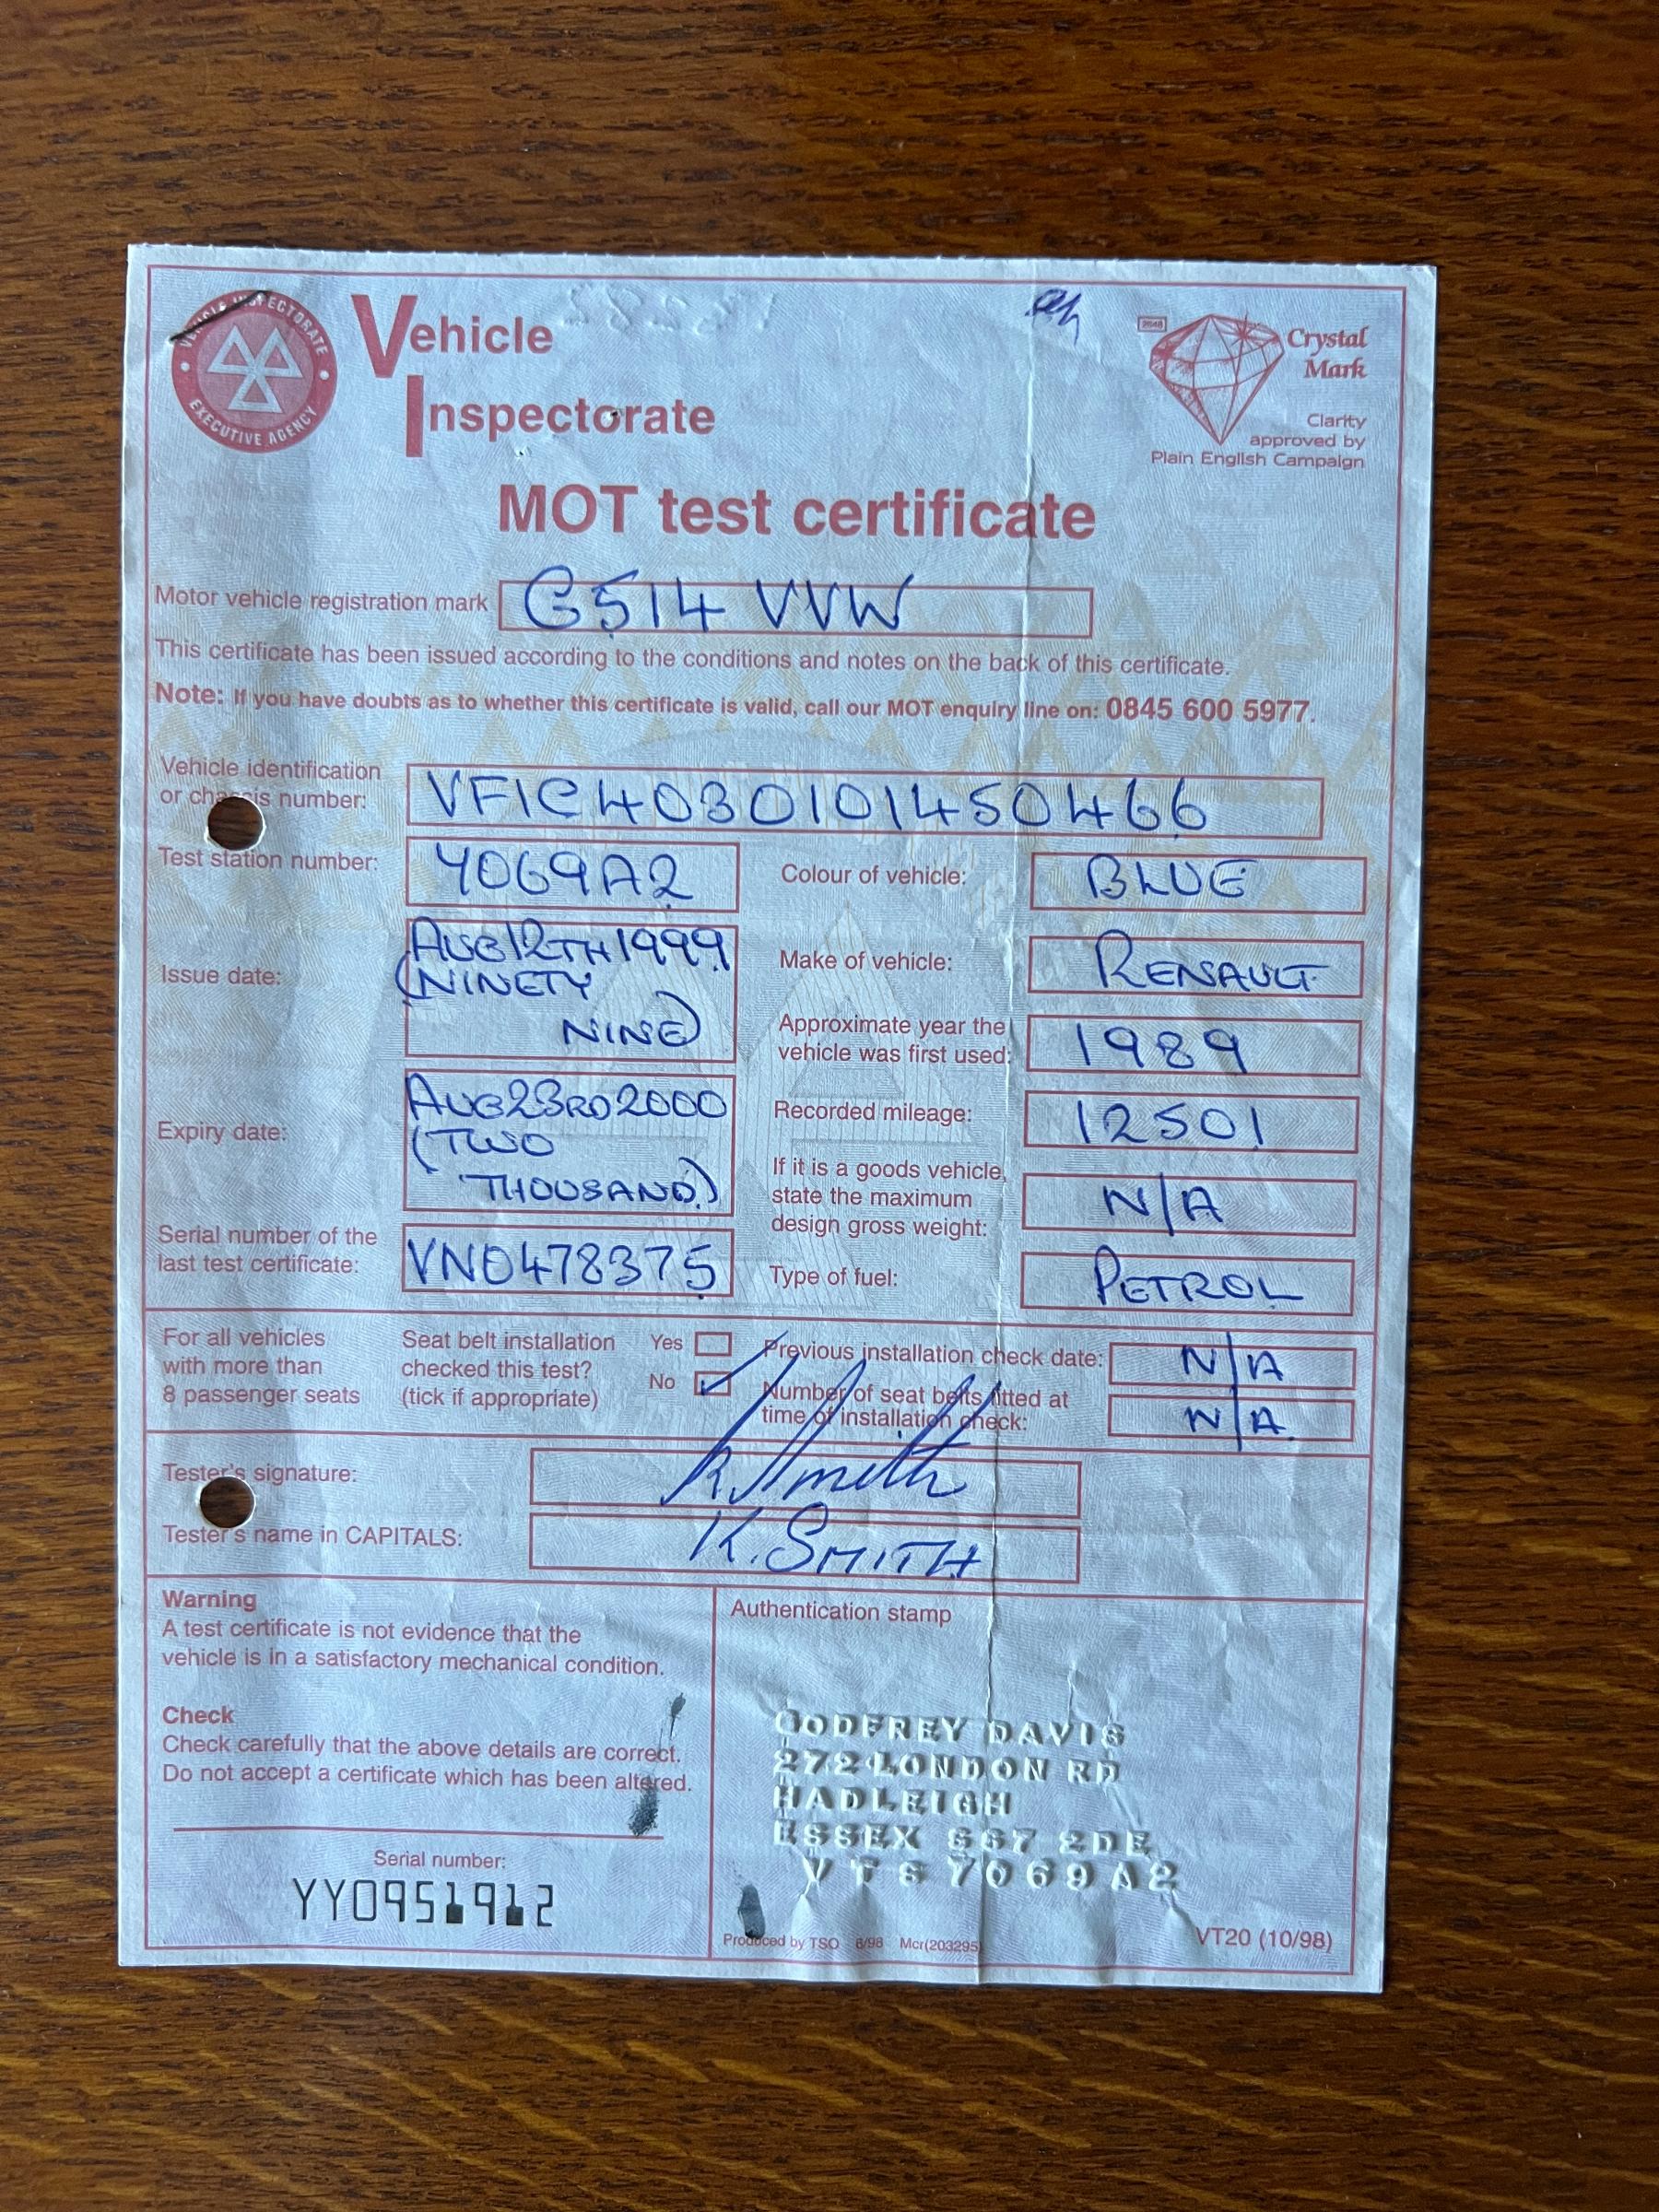 VEHICLE INSPECTORATE
EXECUTIVE AGENCY
Vehicle
Inspectorate
2648
Crystal
Mark
Clarity
approved by
Plain English Campaign
MOT test certificate
Motor vehicle registration mark G514 VVW
This certificate has been issued according to the conditions and notes on the back of this certificate.
Note: If you have doubts as to whether this certificate is valid, call our MOT enquiry line on: 0845 600 5977.
Vehicle identification
or chassis number: VF1C4030101450466
Test station number: 7069A2
Colour of vehicle: BLUE
Issue date: AUG 12TH 1999
(NINETY
NINE)
Make of vehicle: RENAULT
Approximate year the
vehicle was first used: 1989
Expiry date: AUG 23RD 2000
(TWO
THOUSAND)
Recorded mileage: 12501
If it is a goods vehicle,
state the maximum
design gross weight: N/A
Serial number of the
last test certificate: VN0478375
Type of fuel: PETROL
For all vehicles
with more than
8 passenger seats
Seat belt installation
checked this test?
(tick if appropriate)
Yes
No
Previous installation check date: N/A
Number of seat belts fitted at
time of installation check: N/A
Tester's signature: K Smith
Tester's name in CAPITALS: K. SMITH
Warning
A test certificate is not evidence that the
vehicle is in a satisfactory mechanical condition.
Check
Check carefully that the above details are correct.
Do not accept a certificate which has been altered.
Serial number:
YY0951912
Authentication stamp
GODFREY DAVIS
272 LONDON RD
HADLEIGH
ESSEX SS7 2DE
VTS 7069A2
Produced by TSO 6/98 Mcr(203295)
VT20 (10/98)